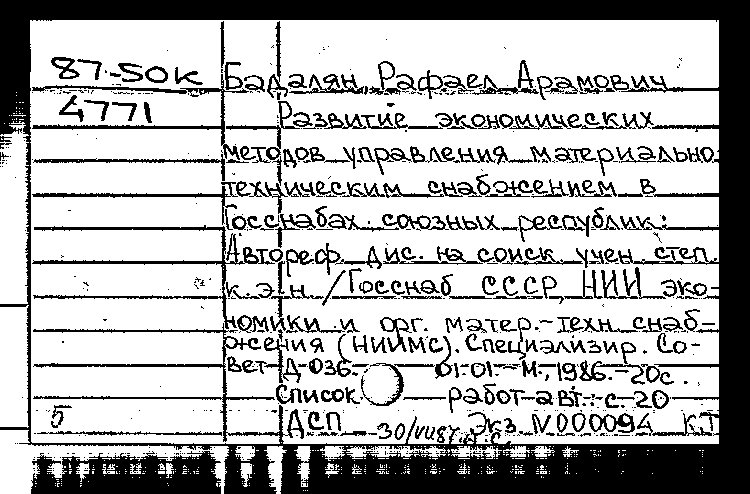 87-50K Бадалян, Рафаел Арамович
4771 Развитие экономических
методов управления материально
техническим снабжением в
Госснабах союзных республик:
Автореф. дис. на соиск. учен. степ.
к.э.н. /Госснаб СССР, НИИ эко-
номики и орг. матер.-техн. снаб-
жения (НИИМС). Специализир. Со-
вет Д 036. 01.01.-М., 1986.-20с.
Список работ авт.: с. 20
5 ДСП Экз. N000094 КТ